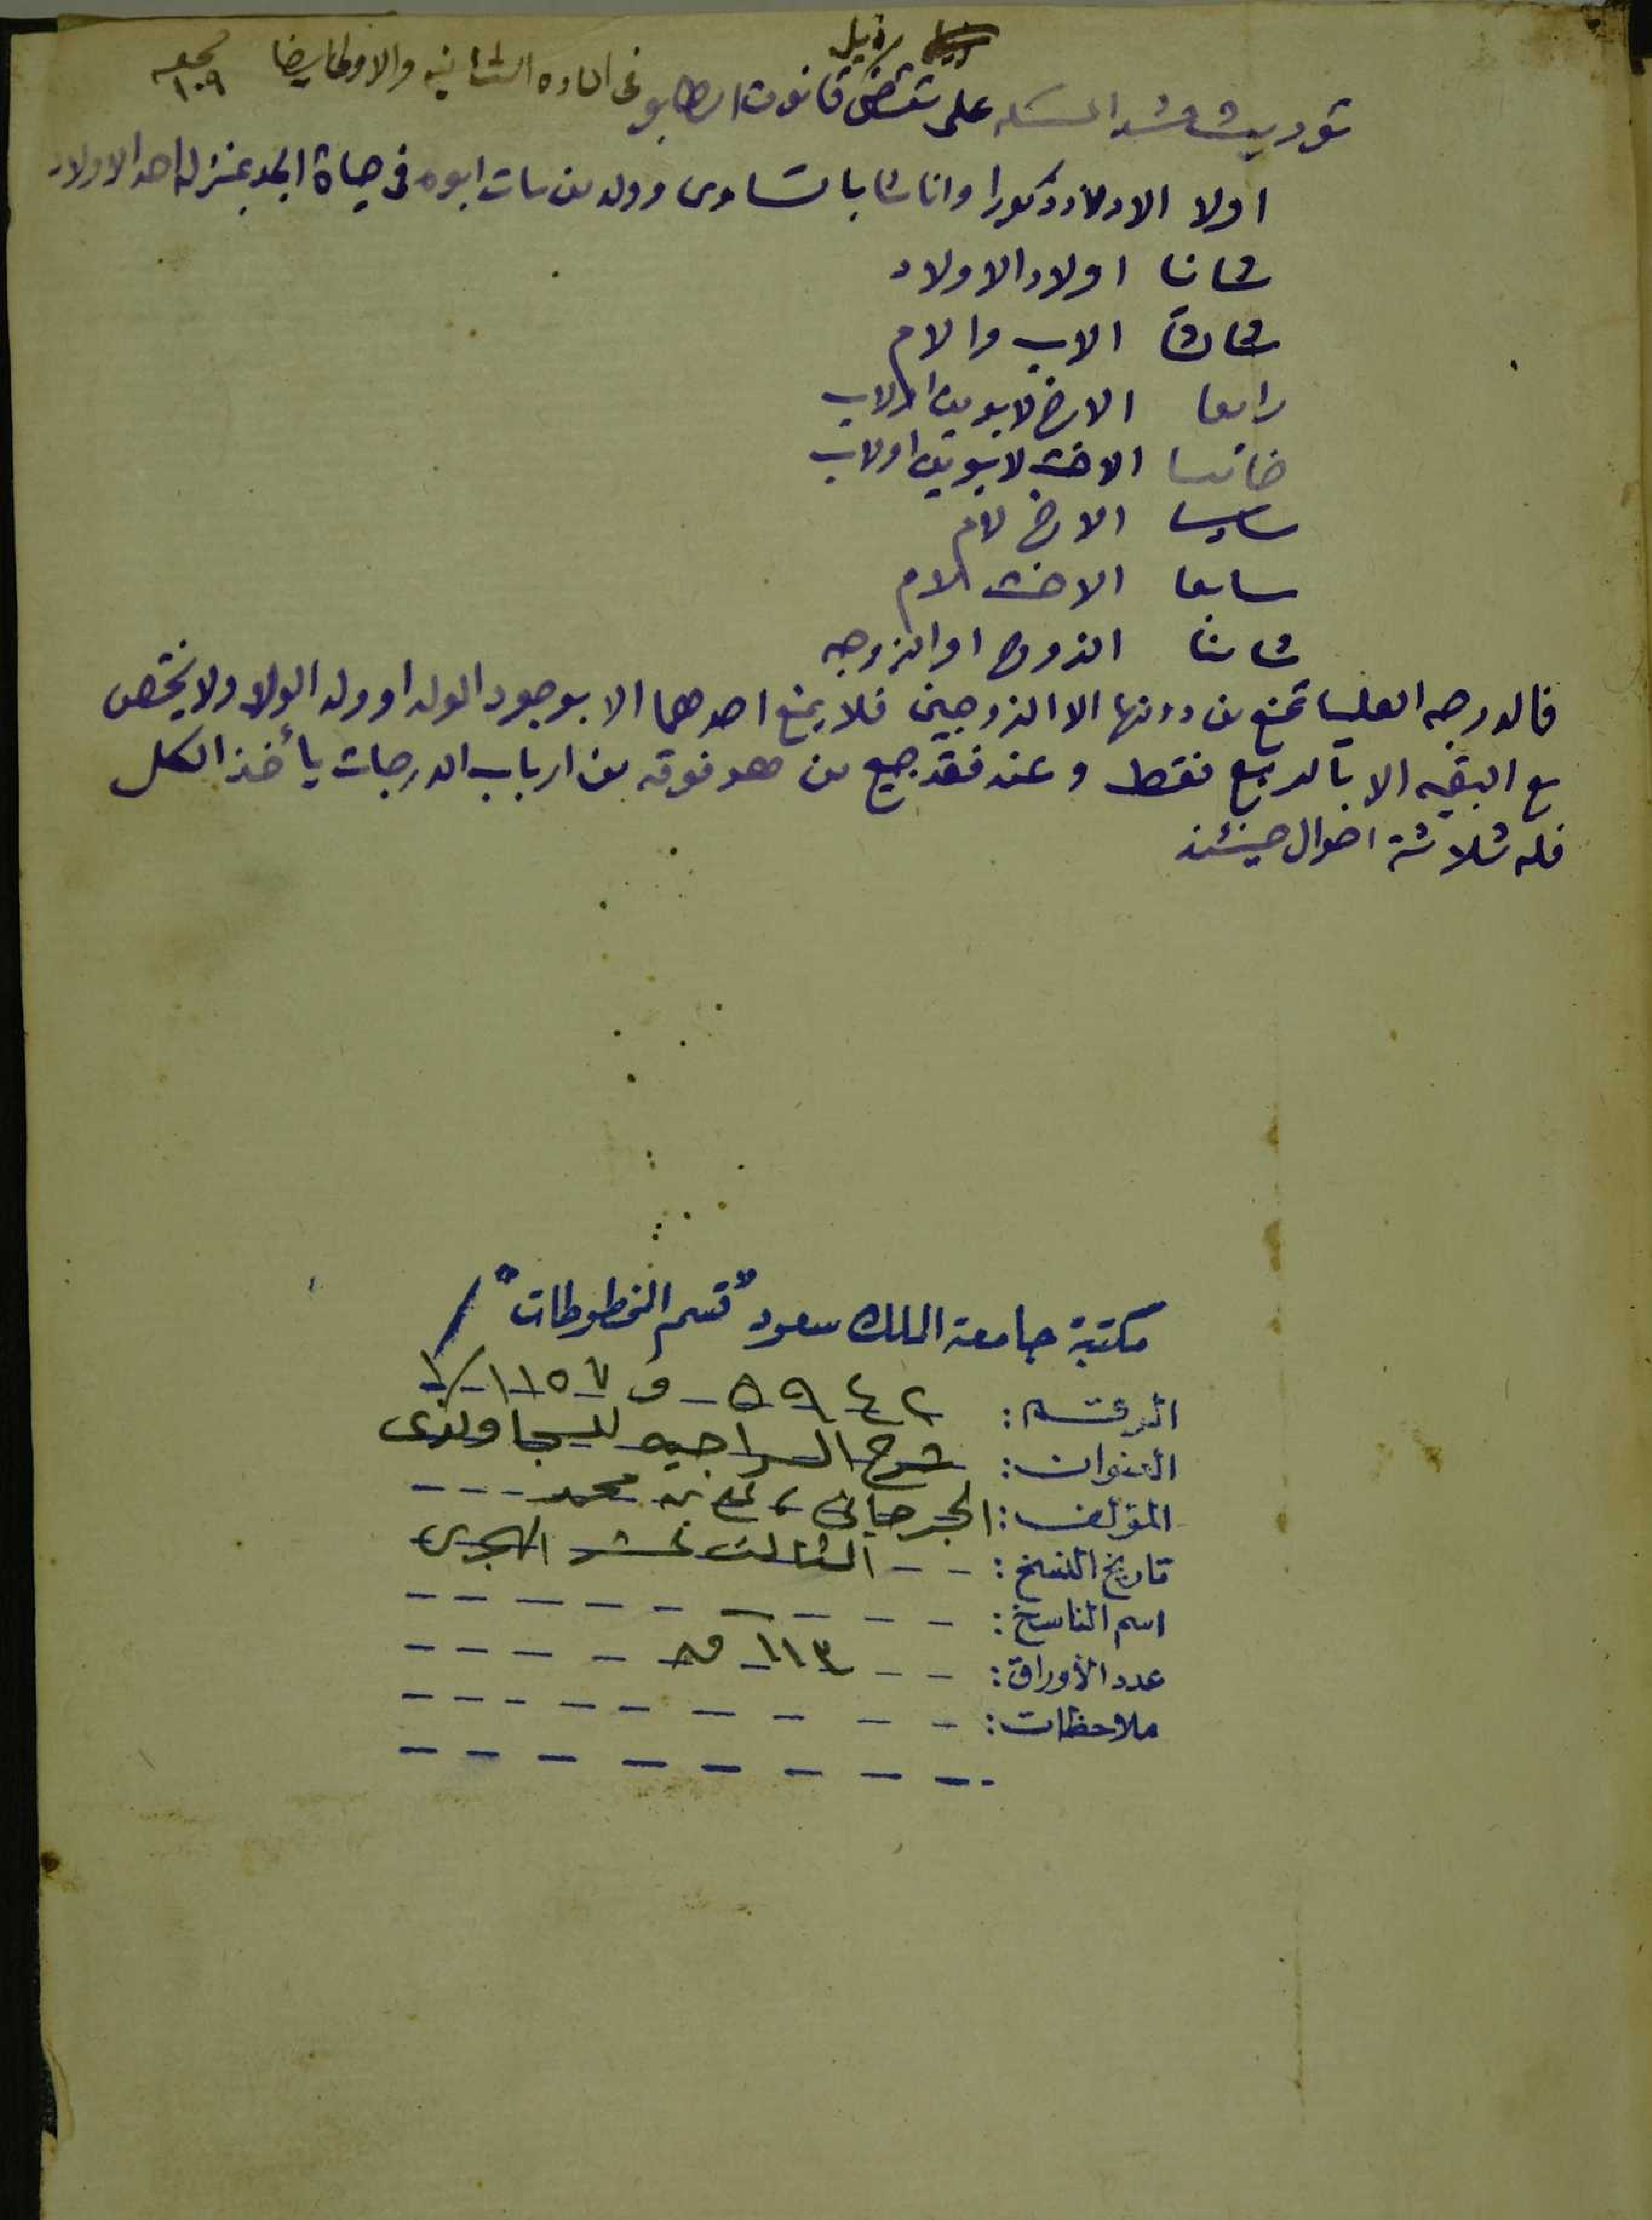 ذيل
توريث المسئله على مقتضى قانون الطابو فى الماده الثانيه والاولى ايضا
١٠٩
اولا الاولاد ذكورا واناثا بالتساوى وولد من مات ابوه فى حياة الجد بمنزلة احد الاولاد
ثانيا اولاد الاولاد
ثالثا الاب والام
رابعا الاخ لابوين او لاب
خامسا الاخت لابوين او لاب
سادسا الاخ لام
سابعا الاخت لام
ثامنا الزوج او الزوجه
فالدرجه العليا تمنع من دونها الا الزوجين فلا يمنع احدهما الا بوجود الولد او ولد الولد ولا يختص
مع البقيه الا بالربع فقط وعند فقد جميع من هو فوقه من ارباب الدرجات يأخذ الكل
فله ثلاثة احوال حينئذ
مكتبة جامعة الملك سعود "قسم المخطوطات"
الرقم: ٥٩٤٢ ف ١١٥٧/١
العنوان: شرح السراجيه للسجاوندى
المؤلف: الجرجانى، على بن محمد
تاريخ النسخ: الثالث عشر الهجرى
اسم الناسخ:
عدد الأوراق: ١١٣ ق
ملاحظات: